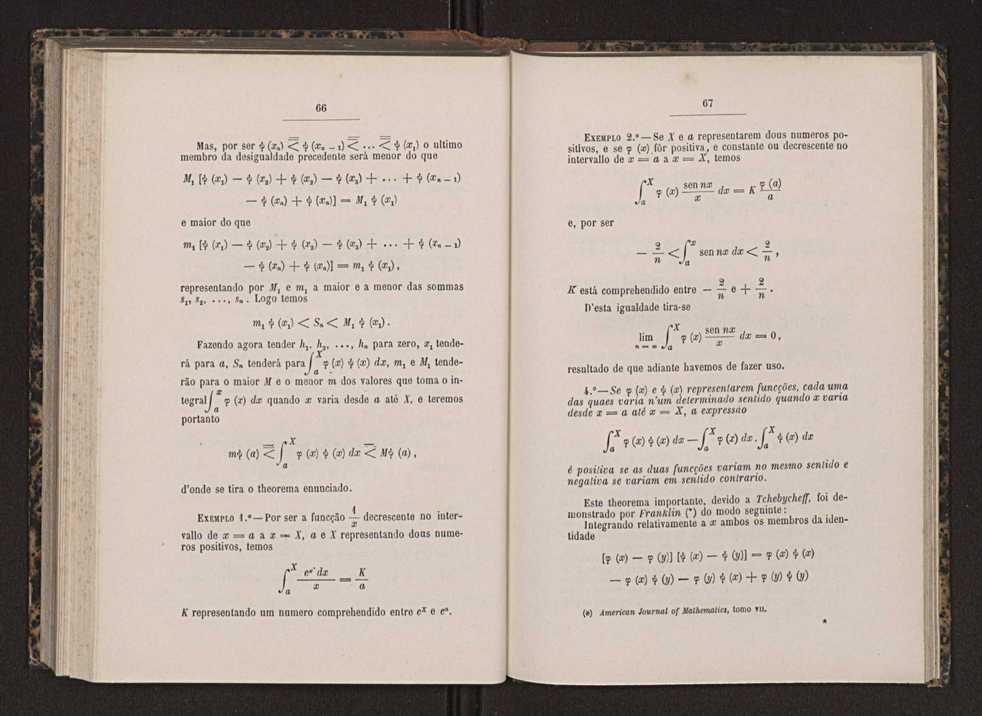 66
Mas, por ser ψ (xₙ) ⋜ ψ (xₙ₋₁) ⋜ ... ⋜ ψ (x₁) o ultimo
membro da desigualdade precedente será menor do que
M₁ [ψ (x₁) — ψ (x₂) + ψ (x₂) — ψ (x₃) + ... + ψ (xₙ₋₁)
— ψ (xₙ) + ψ (xₙ)] = M₁ ψ (x₁)
e maior do que
m₁ [ψ (x₁) — ψ (x₂) + ψ (x₂) — ψ (x₃) + ... + ψ (xₙ₋₁)
— ψ (xₙ) + ψ (xₙ)] = m₁ ψ (x₁),
representando por M₁ e m₁ a maior e a menor das sommas
s₁, s₂, ..., sₙ. Logo temos
m₁ ψ (x₁) < Sₙ < M₁ ψ (x₁).
Fazendo agora tender h₁, h₂, ..., hₙ para zero, x₁ tende-
rá para a, Sₙ tenderá para ∫ₐˣ φ (x) ψ (x) dx, m₁ e M₁ tende-
rão para o maior M e o menor m dos valores que toma o in-
tegral ∫ₐˣ φ (x) dx quando x varia desde a até X, e teremos
portanto
mψ (a) ⋜ ∫ₐˣ φ (x) ψ (x) dx ⋜ Mψ (a),
d'onde se tira o theorema enunciado.
EXEMPLO 1.º — Por ser a funcção 1/x decrescente no inter-
vallo de x = a a x = X, a e X representando dous nume-
ros positivos, temos
∫ₐˣ eˣ dx / x = K / a
K representando um numero comprehendido entre eˣ e eᵃ.
67
EXEMPLO 2.º — Se X e a representarem dous numeros po-
sitivos, e se φ (x) fôr positiva, e constante ou decrescente no
intervallo de x = a a x = X, temos
∫ₐˣ φ (x) sen nx / x dx = K φ (a) / a
e, por ser
— 2/n < ∫ₐˣ sen nx dx < 2/n,
K está comprehendido entre — 2/n e + 2/n.
D'esta igualdade tira-se
lim n=∞ ∫ₐˣ φ (x) sen nx / x dx = 0,
resultado de que adiante havemos de fazer uso.
4.º — Se φ (x) e ψ (x) representarem funcções, cada uma
das quaes varia n'um determinado sentido quando x varia
desde x = a até x = X, a expressão
∫ₐˣ φ (x) ψ (x) dx — ∫ₐˣ φ (x) dx . ∫ₐˣ ψ (x) dx
é positiva se as duas funcções variam no mesmo sentido e
negativa se variam em sentido contrario.
Este theorema importante, devido a Tchebycheff, foi de-
monstrado por Franklin (*) do modo seguinte:
Integrando relativamente a x ambos os membros da iden-
tidade
[φ (x) — φ (y)] [ψ (x) — ψ (y)] = φ (x) ψ (x)
— φ (x) ψ (y) — φ (y) ψ (x) + φ (y) ψ (y)
(*) American Journal of Mathematics, tomo VII.
*